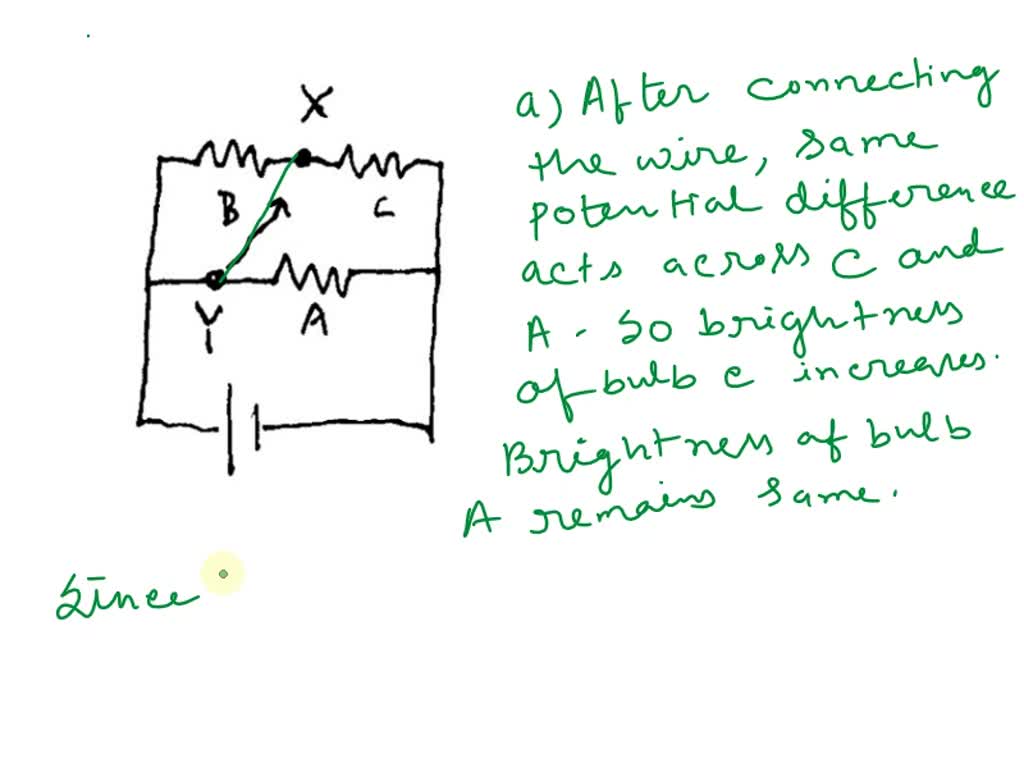 X
B
C
Y
A
a) After connecting
the wire, same
potential difference
acts across C and
A. So brightness
of bulb C increases.
Brightness of bulb
A remains same.
Since